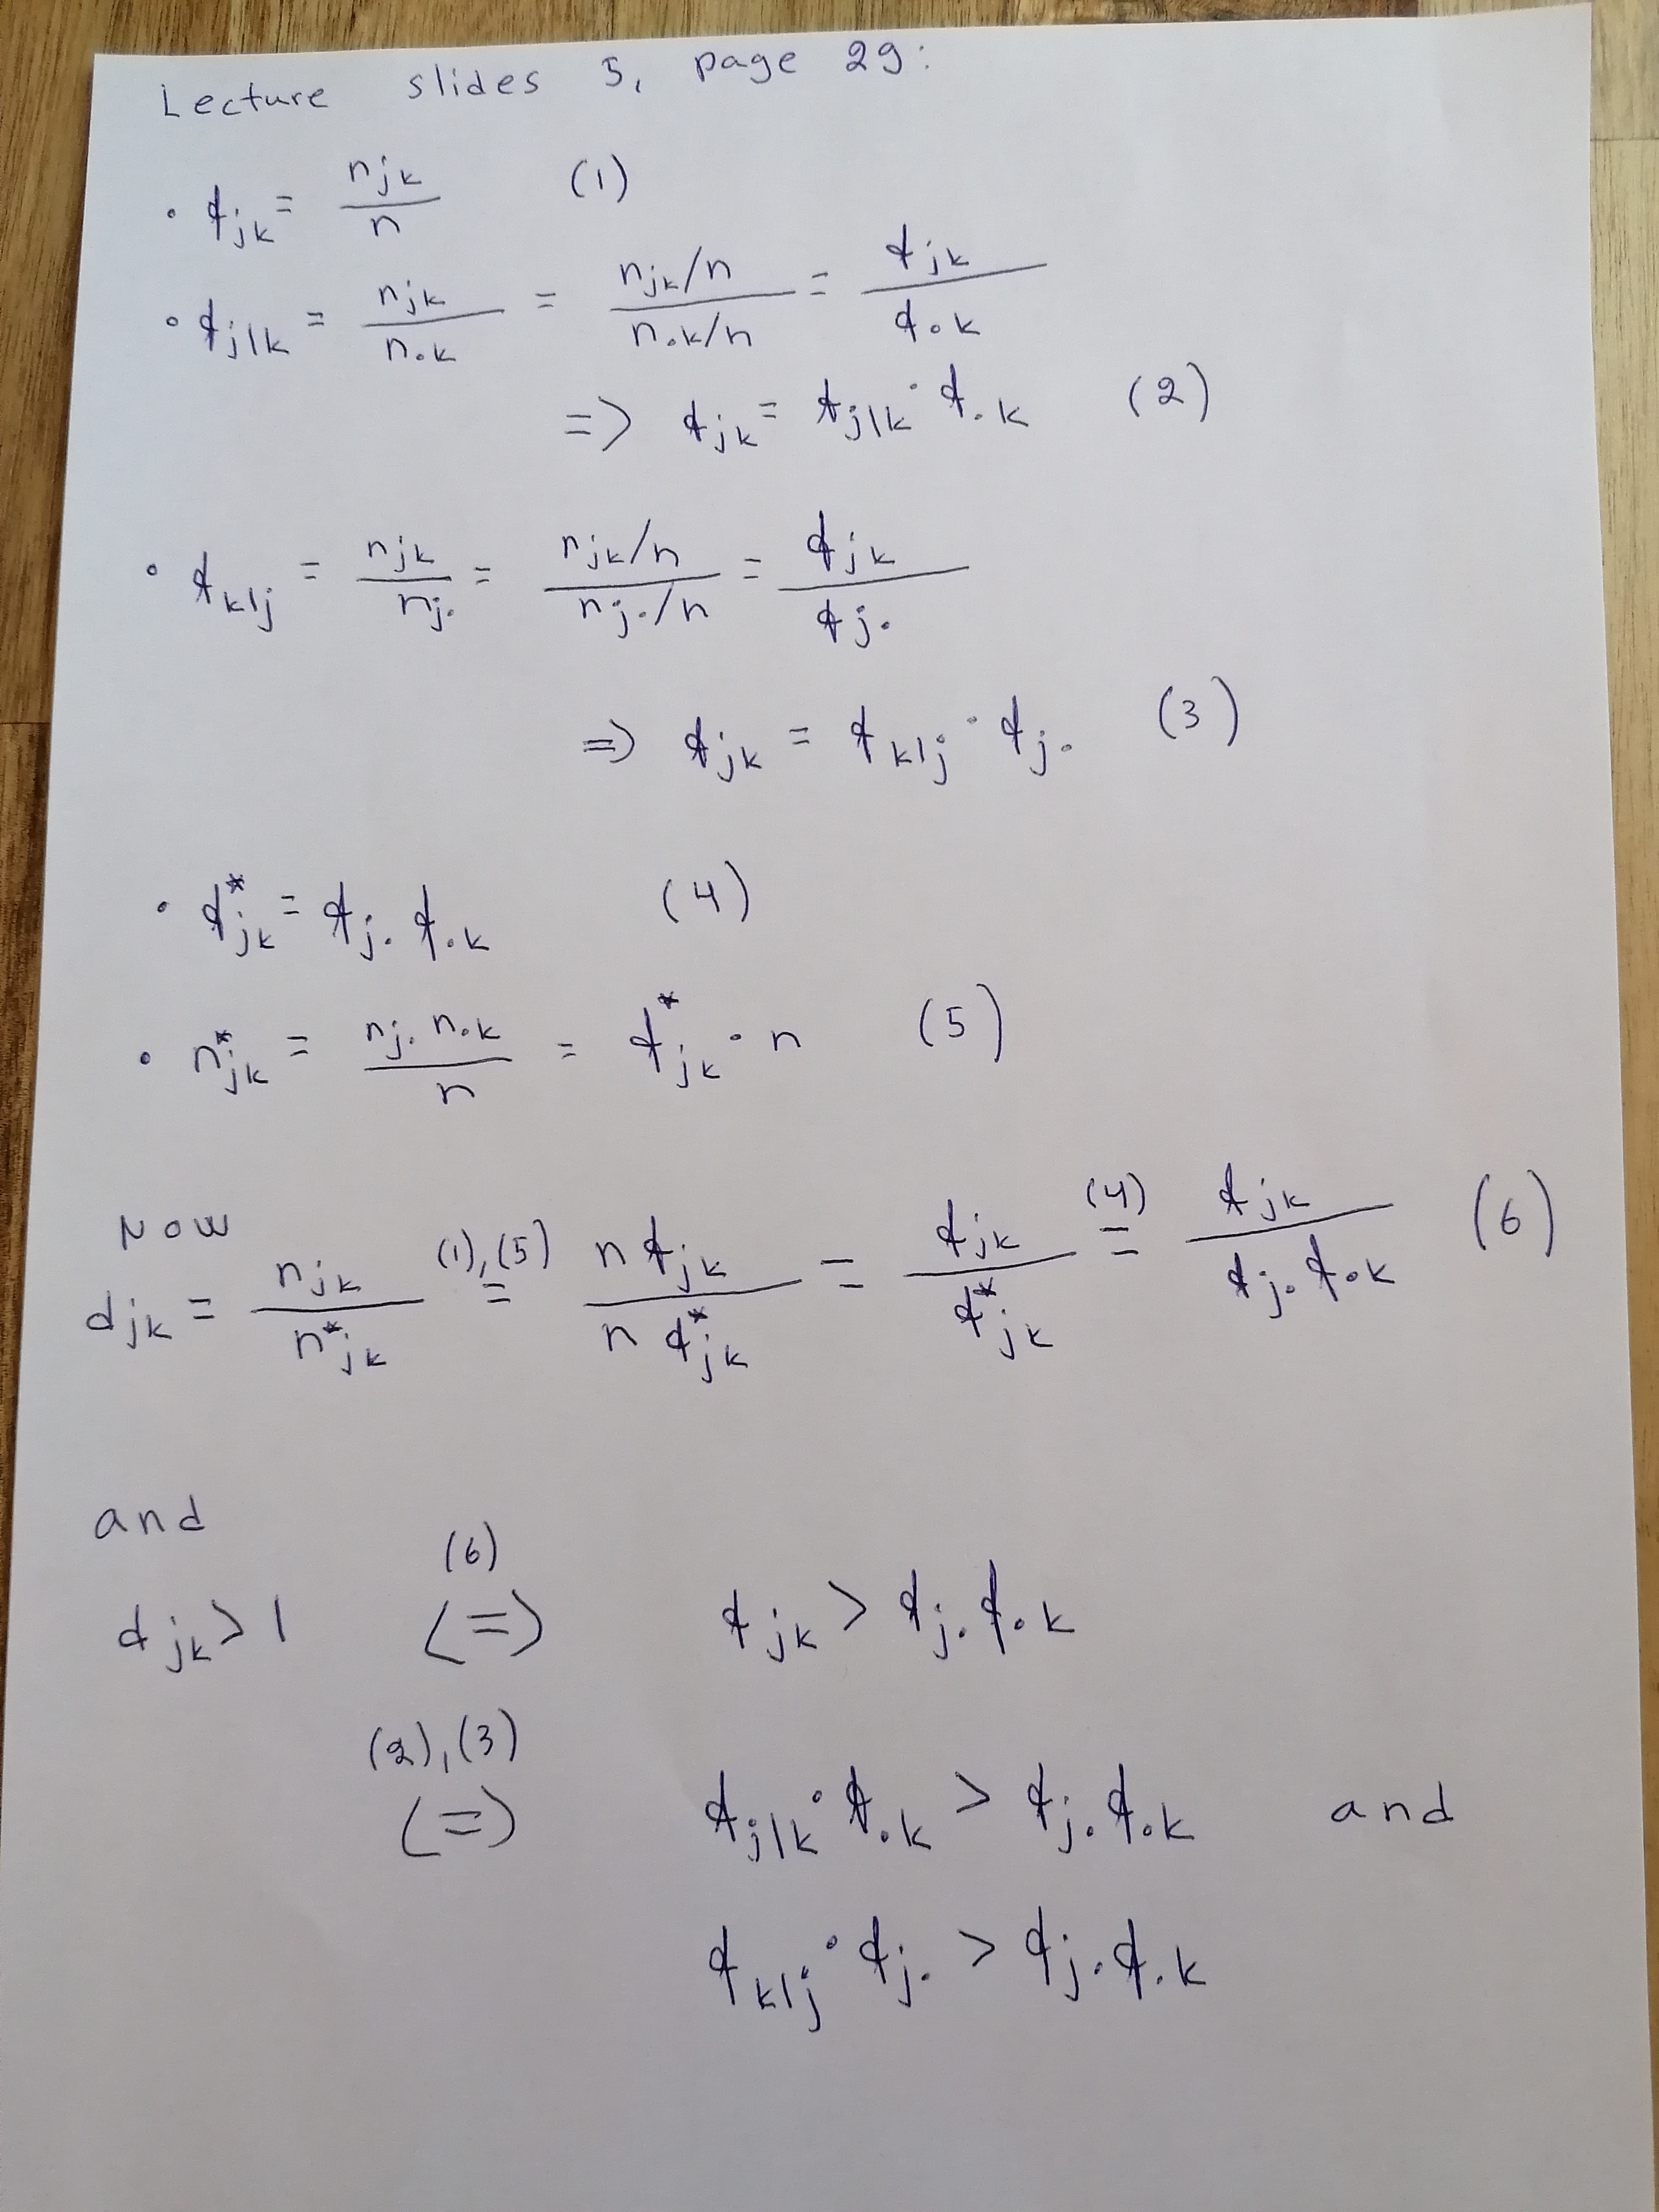 Lecture slides 5, page 29:
• fjk = njk / n (1)
• fj|k = njk / n.k = (njk/n) / (n.k/n) = fjk / f.k
=> fjk = fj|k · f.k (2)
• fk|j = njk / nj. = (njk/n) / (nj./n) = fjk / fj.
=> fjk = fk|j · fj. (3)
• f*jk = fj. f.k (4)
• n*jk = nj. n.k / n = f*jk · n (5)
Now
djk = njk / n*jk (1),(5) = n fjk / n f*jk = fjk / f*jk (4) = fjk / fj. f.k (6)
and
djk > 1 (6) <=> fjk > fj. f.k
(2),(3) <=> fj|k · f.k > fj. f.k and
fk|j · fj. > fj. f.k